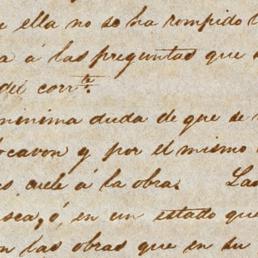 ella no se ha rompido
a á las preguntas que s
del corr.te
minima duda de que se
ocavon y por el mismo
cuele á la obra. Las
sea, ó, en un estado que
n las obras que en su